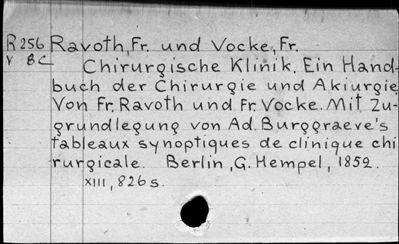 R 256 Ravoth, Fr. und Vocke, Fr.
V BC
Chirurgische Klinik. Ein Hand-
buch der Chirurgie und Akiurgie
Von Fr. Ravoth und Fr. Vocke. Mit Zu-
grundlegung von Ad. Burggraeve's
tableaux synoptiques de clinique chi
rurgicale. Berlin, G. Hempel, 1852.
XIII, 826 s.